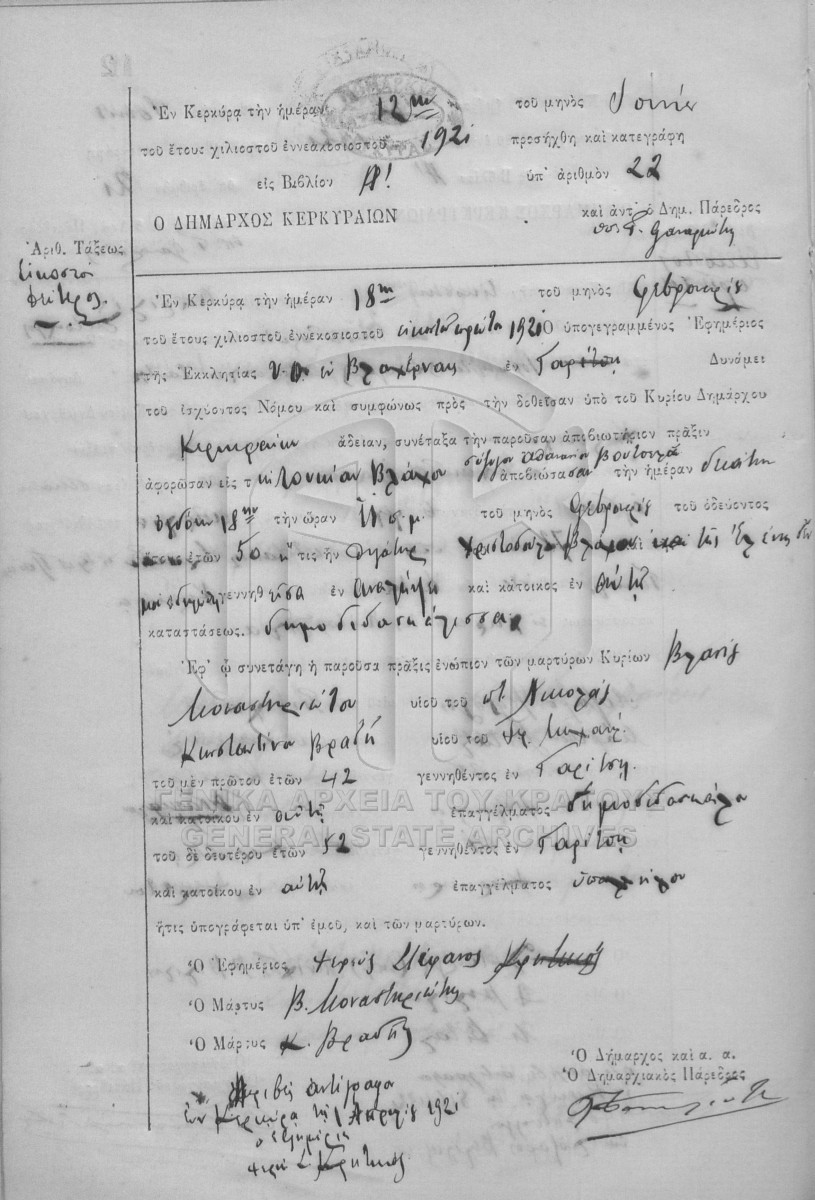 Ἐν Κερκύρᾳ τὴν ἡμέραν 12ην τοῦ μηνὸς
τοῦ ἔτους χιλιοστοῦ ἐννεακοσιοστοῦ 1921 προσήχθη καὶ κατεγράφη
εἰς Βιβλίον Α! ὑπ' ἀριθμὸν 22
Ο ΔΗΜΑΡΧΟΣ ΚΕΡΚΥΡΑΙΩΝ
καὶ ἀντ' ὁ Δημ. Πάρεδρος
Ἀριθ. Τάξεως
εἰκοστὸ
Ἐν Κερκύρᾳ τὴν ἡμέραν 18ην τοῦ μηνὸς Φεβρουαρίου
τοῦ ἔτους χιλιοστοῦ ἐννεκοσιοστοῦ εἰκοστοῦ πρώτου 1921 Ὁ ὑπογεγραμμένος Ἐφημέριος
τῆς Ἐκκλησίας Βλαχέρνας ἐν Γαρίτσῃ Δυνάμει
τοῦ ἰσχύοντος Νόμου καὶ συμφώνως πρὸς τὴν δοθεῖσαν ὑπὸ τοῦ Κυρίου Δημάρχου
Κερκυραίων ἄδειαν, συνέταξα τὴν παροῦσαν ἀποβιωτήριον πρᾶξιν
σύζυγον Ἀθανασίου
ἀφορῶσαν εἰς τὴν Λουκίαν Βλάχου ἀποβιώσασαν τὴν ἡμέραν δεκάτην
ὀγδόην 18ην τὴν ὥραν 11 π.μ. τοῦ μηνὸς Φεβρουαρίου τοῦ ὁδεύοντος
ἔτους ἐτῶν 50 ἥτις ἦν θυγάτηρ Χριστοδούλου Βλάχου καὶ τῆς Ἑλένης
γεννηθεῖσα ἐν καὶ κάτοικος ἐν αὐτῇ
καταστάσεως. δημοδιδασκάλισσα
Ἐφ' ᾧ συνετάγη ἡ παροῦσα πρᾶξις ἐνώπιον τῶν μαρτύρων Κυρίων
Μοναστηριώτου υἱοῦ τοῦ Νικολάου
Κωνσταντίνου Βραδῆ υἱοῦ τοῦ
τοῦ μὲν πρώτου ἐτῶν 42 γεννηθέντος ἐν Γαρίτσῃ
καὶ κατοίκου ἐν αὐτῇ ἐπαγγέλματος δημοδιδασκάλου
τοῦ δὲ δευτέρου ἐτῶν 52 γεννηθέντος ἐν Γαρίτσῃ
καὶ κατοίκου ἐν αὐτῇ ἐπαγγέλματος ὑπαλλήλου
ἥτις ὑπογράφεται ὑπ' ἐμοῦ, καὶ τῶν μαρτύρων.
Ὁ Ἐφημέριος Ἱερεὺς Στέφανος Κρητικὸς
Ὁ Μάρτυς Β. Μοναστηριώτης
Ὁ Μάρτυς Κ. Βραδῆς
Ὁ Δήμαρχος καὶ α. α.
Ὁ Δημαρχιακὸς Πάρεδρος
Ἀκριβὲς ἀντίγραφον
ἐν Κερκύρᾳ τῇ 1 Ἀπριλίου 1921
ὁ ἐφημέριος
ἱερεὺς Σ. Κρητικός
ΓΕΝΙΚΑ ΑΡΧΕΙΑ ΤΟΥ ΚΡΑΤΟΥΣ
GENERAL STATE ARCHIVES